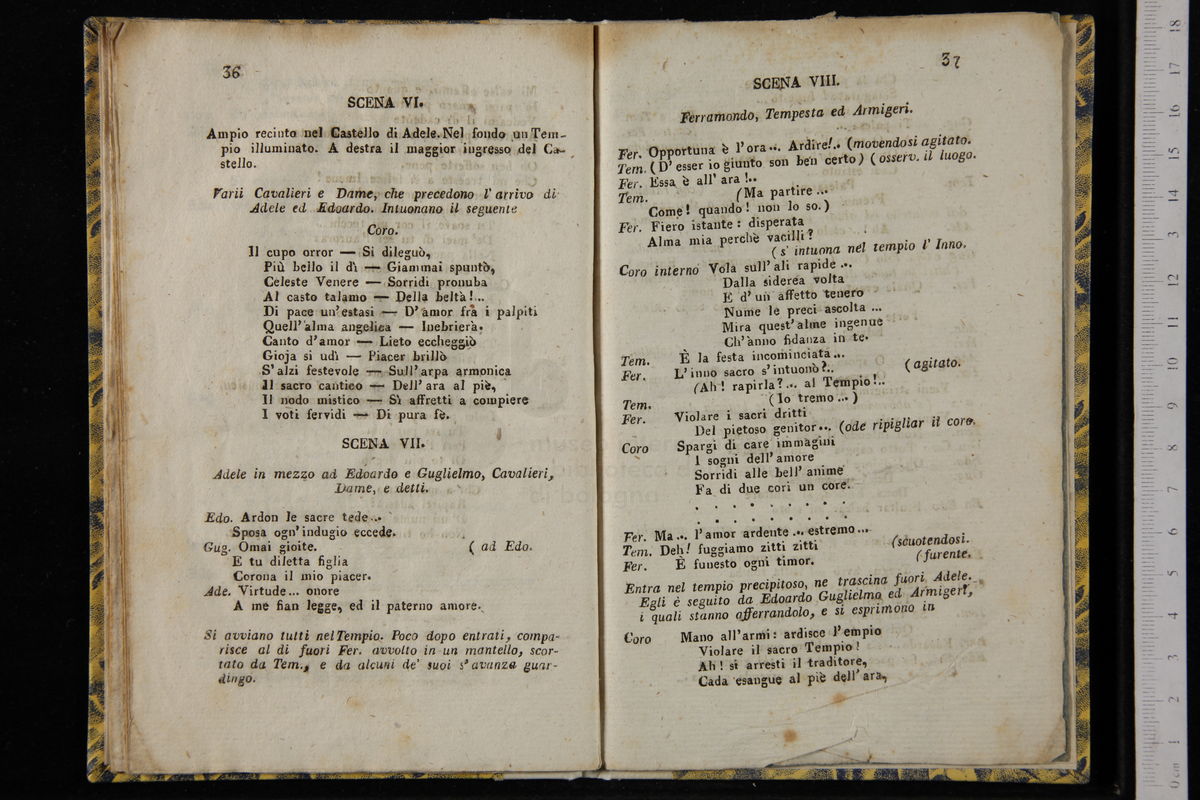 36
SCENA VI.
Ampio recinto nel Castello di Adele. Nel fondo un Tem-
pio illuminato. A destra il maggior ingresso del Ca-
stello.
Varii Cavalieri e Dame, che precedono l'arrivo di
Adele ed Edoardo. Intuonano il seguente
Coro.
Il cupo orror — Si dileguò,
Più bello il dì — Giammai spuntò,
Celeste Venere — Sorridi pronuba
Al casto talamo — Della beltà!...
Di pace un'estasi — D'amor fra i palpiti
Quell'alma angelica — Inebrierà.
Canto d'amor — Lieto eccheggiò
Gioja si udì — Piacer brillò
S'alzi festevole — Sull'arpa armonica
Il sacro cantico — Dell'ara al piè,
Il nodo mistico — Si affretti a compiere
I voti fervidi — Di pura fè.
SCENA VII.
Adele in mezzo ad Edoardo e Guglielmo, Cavalieri,
Dame, e detti.
Edo. Ardon le sacre tede...
Sposa ogn'indugio eccede.
Gug. Omai gioite. ( ad Edo.
E tu diletta figlia
Corona il mio piacer.
Ade. Virtude... onore
A me fian legge, ed il paterno amore.
Si avviano tutti nel Tempio. Poco dopo entrati, compa-
risce al di fuori Fer. avvolto in un mantello, scor-
tato da Tem., e da alcuni de' suoi s'avanza guar-
dingo.
37
SCENA VIII.
Ferramondo, Tempesta ed Armigeri.
Fer. Opportuna è l'ora... Ardire!.. (movendosi agitato.
Tem. (D'esser io giunto son ben certo) (osserv. il luogo.
Fer. Essa è all'ara!..
Tem. (Ma partire...
Come! quando! non lo so.)
Fer. Fiero istante: disperata
Alma mia perchè vacilli?
(s'intuona nel tempio l'Inno.
Coro interno Vola sull'ali rapide...
Dalla siderea volta
E d'un affetto tenero
Nume le preci ascolta...
Mira quest'alme ingenue
Ch'anno fidanza in te.
Tem. È la festa incominciata...
Fer. L'inno sacro s'intuonò?.. (agitato.
(Ah! rapirla?... al Tempio!..
Tem. (Io tremo...)
Fer. Violare i sacri dritti
Del pietoso genitor... (ode ripigliar il coro.
Coro Spargi di care immagini
I sogni dell'amore
Sorridi alle bell'anime
Fa di due cori un core.
. . . . . . . .
. . . . . . . .
Fer. Ma... l'amor ardente... estremo...
Tem. Deh! fuggiamo zitti zitti (scuotendosi.
Fer. È funesto ogni timor. (furente.
Entra nel tempio precipitoso, ne trascina fuori Adele.
Egli è seguito da Edoardo Guglielmo ed Armigeri,
i quali stanno afferrandolo, e si esprimono in
Coro Mano all'armi: ardisce l'empio
Violare il sacro Tempio!
Ah! si arresti il traditore,
Cada esangue al piè dell'ara,